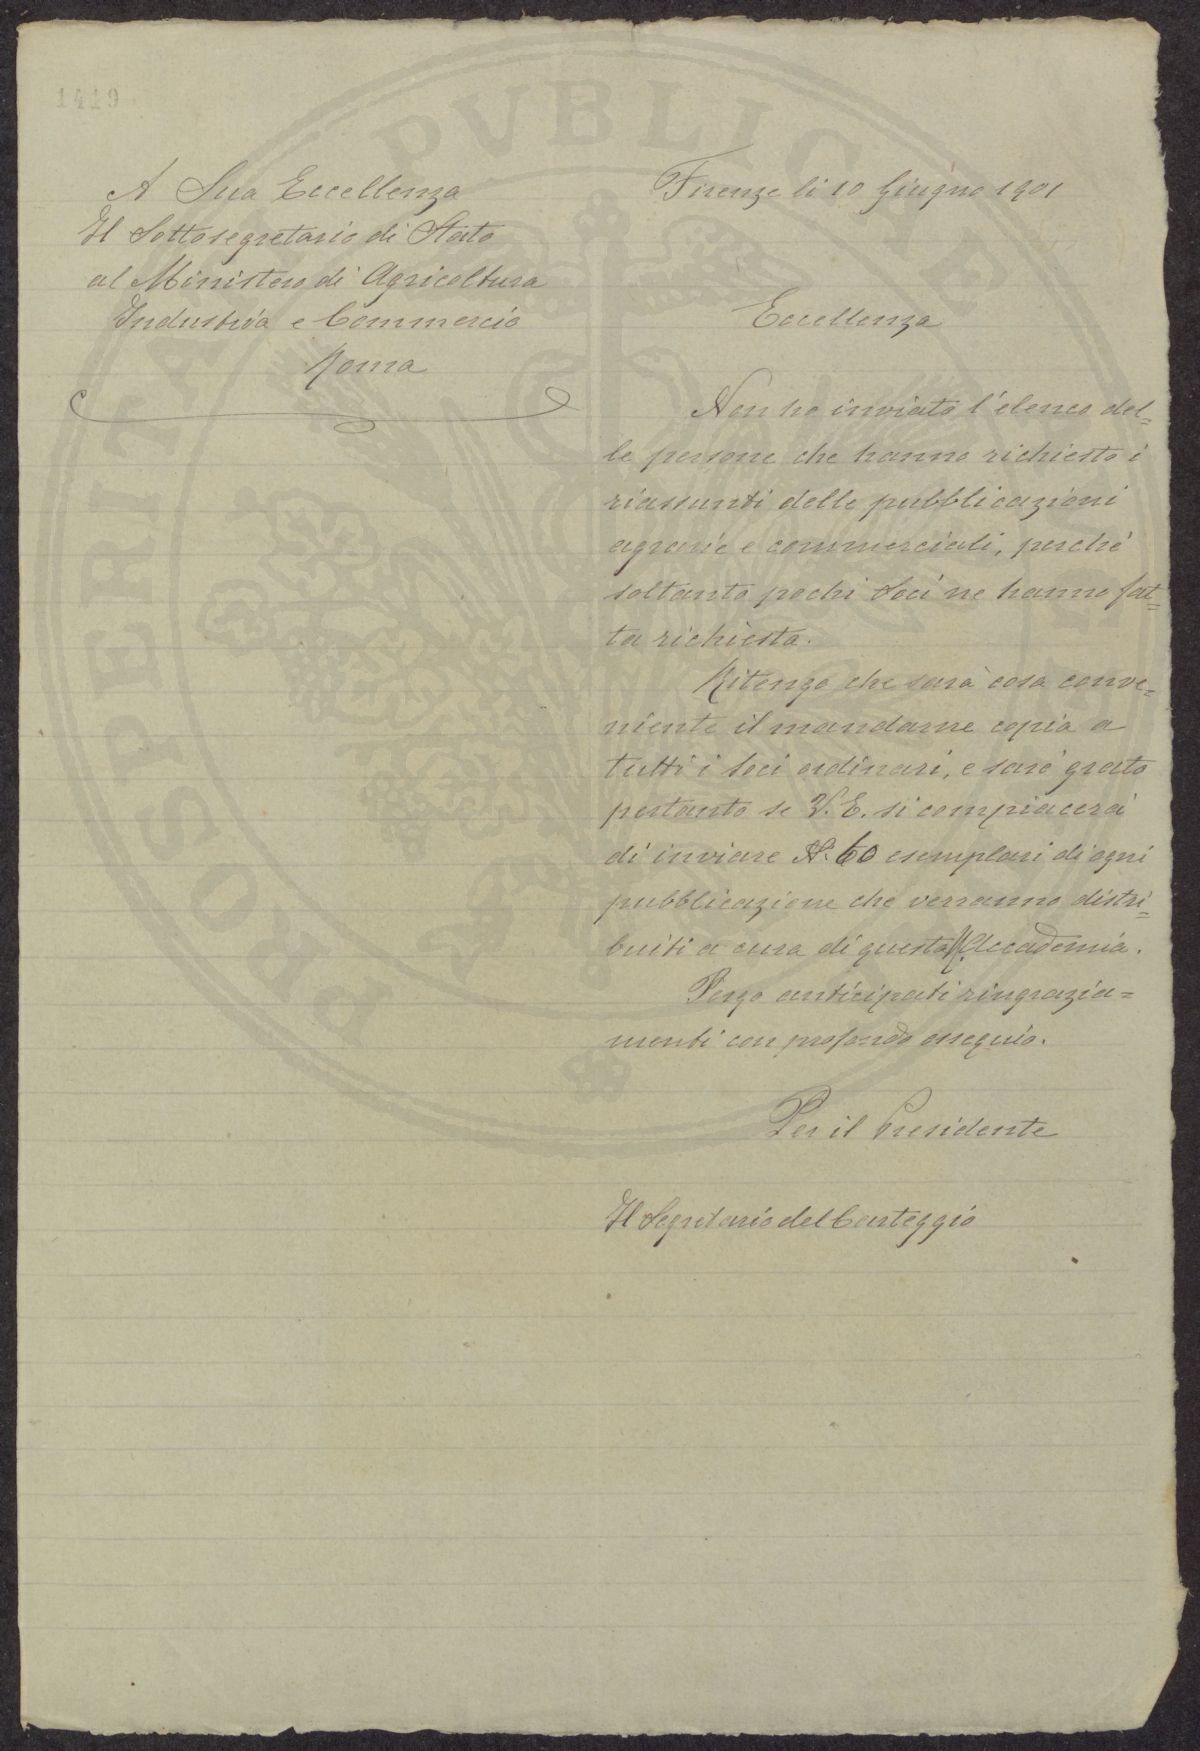 1419
A Sua Eccellenza
Il Sottosegretario di Stato
al Ministero di Agricoltura
Industria e Commercio
Roma
Firenze li 10 Giugno 1901
Eccellenza
Non ho inviato l'elenco del=
le persone che hanno richiesto i
riassunti delle pubblicazioni
agrarie e commerciali, perché
soltanto pochi Soci ne hanno fat=
ta richiesta.
Ritengo che sarà cosa conve=
niente il mandarne copia a
tutti i Soci ordinari, e sarò grato
pertanto se V. E. si compiacerà
di inviare N. 60 esemplari di ogni
pubblicazione che verranno distri=
buiti a cura di questa R. Accademia.
Porgo anticipati ringrazia=
menti con profondo ossequio.
Per il Presidente
Il Segretario del Carteggio
PROSPERITATI PVBLICAE